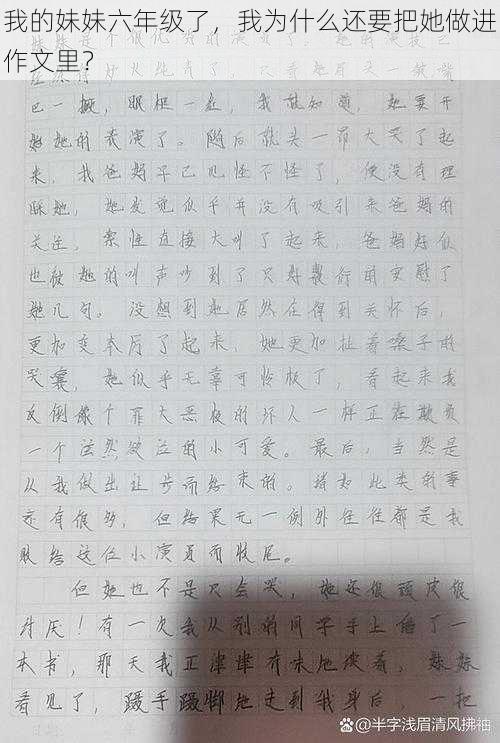 我的妹妹六年级了，我为什么还要把她做进
作文里？
巴一撅，眼眶一红，我就知道，她要开
始她的表演了。随后就头一昂大哭了起
来，我爸妈早已见怪不怪了，便没有理
睬她，她发觉似乎并没有吸引来爸妈的
关注，索性直接大叫了起来，爸妈好似
也被她的叫声吵到了只好敷衍的安慰了
她几句。没想到她居然在得到关怀后，
更加变本厉了起来，她更加扯着嗓子的
哭嚷，她似乎无辜可怜极了，看起来我
反倒像个罪大恶极的坏人一样正在欺负
一个泫然欲泣的小可爱。最后，当然是
从我做出让步而结束的。诸如此类的事
还有很多，但结果无一例外往往都是我
服给这位小演员而收尾。
但她也不是只会哭，她还很顽皮很
讨厌！有一次我从别的同学手上借了一
本书，那天我正津津有味地读着，妹妹
看见了，蹑手蹑脚地走到我身后，一把
@半字浅眉清风拂袖